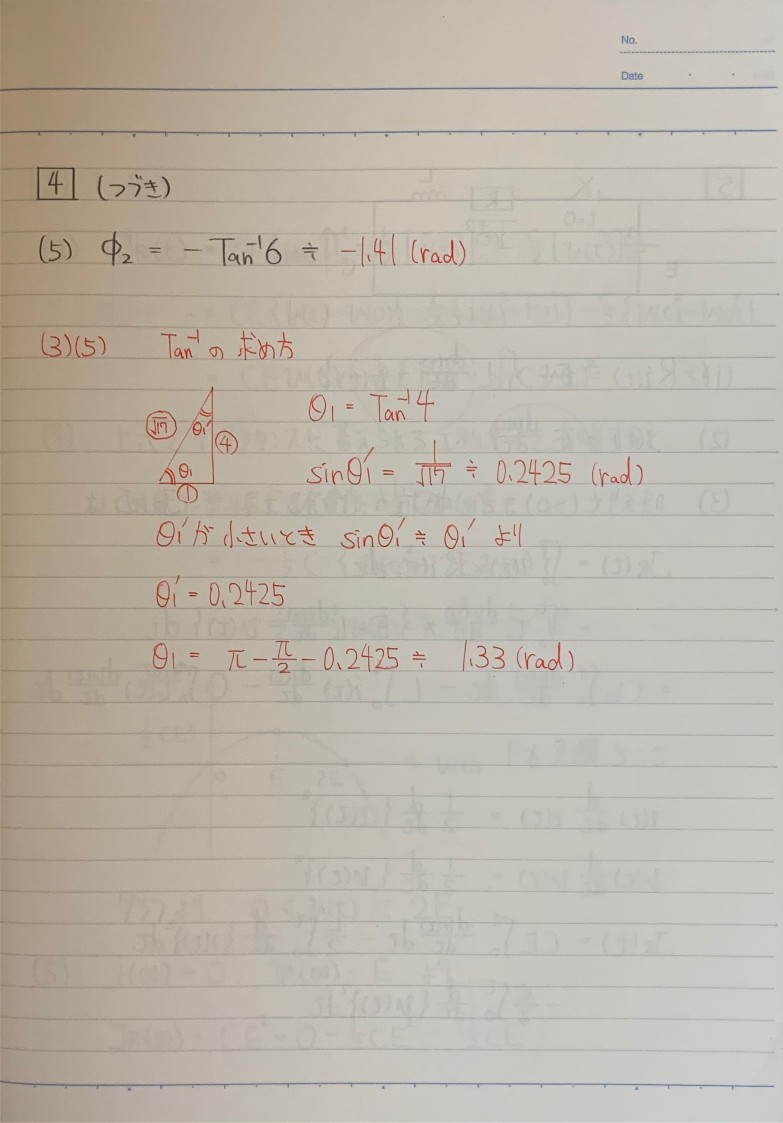 No.
Date
4 (つづき)
(5) Φ₂ = − Tan⁻¹6 ≒ −1.41 (rad)
(3)(5) Tan⁻¹の求め方
√17 θ₁′ ④
θ₁ ①
θ₁ = Tan⁻¹4
sinθ₁′ = 1/√17 ≒ 0.2425 (rad)
θ₁′が小さいとき sinθ₁′ ≒ θ₁′ より
θ₁′ = 0.2425
θ₁ = π − π/2 − 0.2425 ≒ 1.33 (rad)